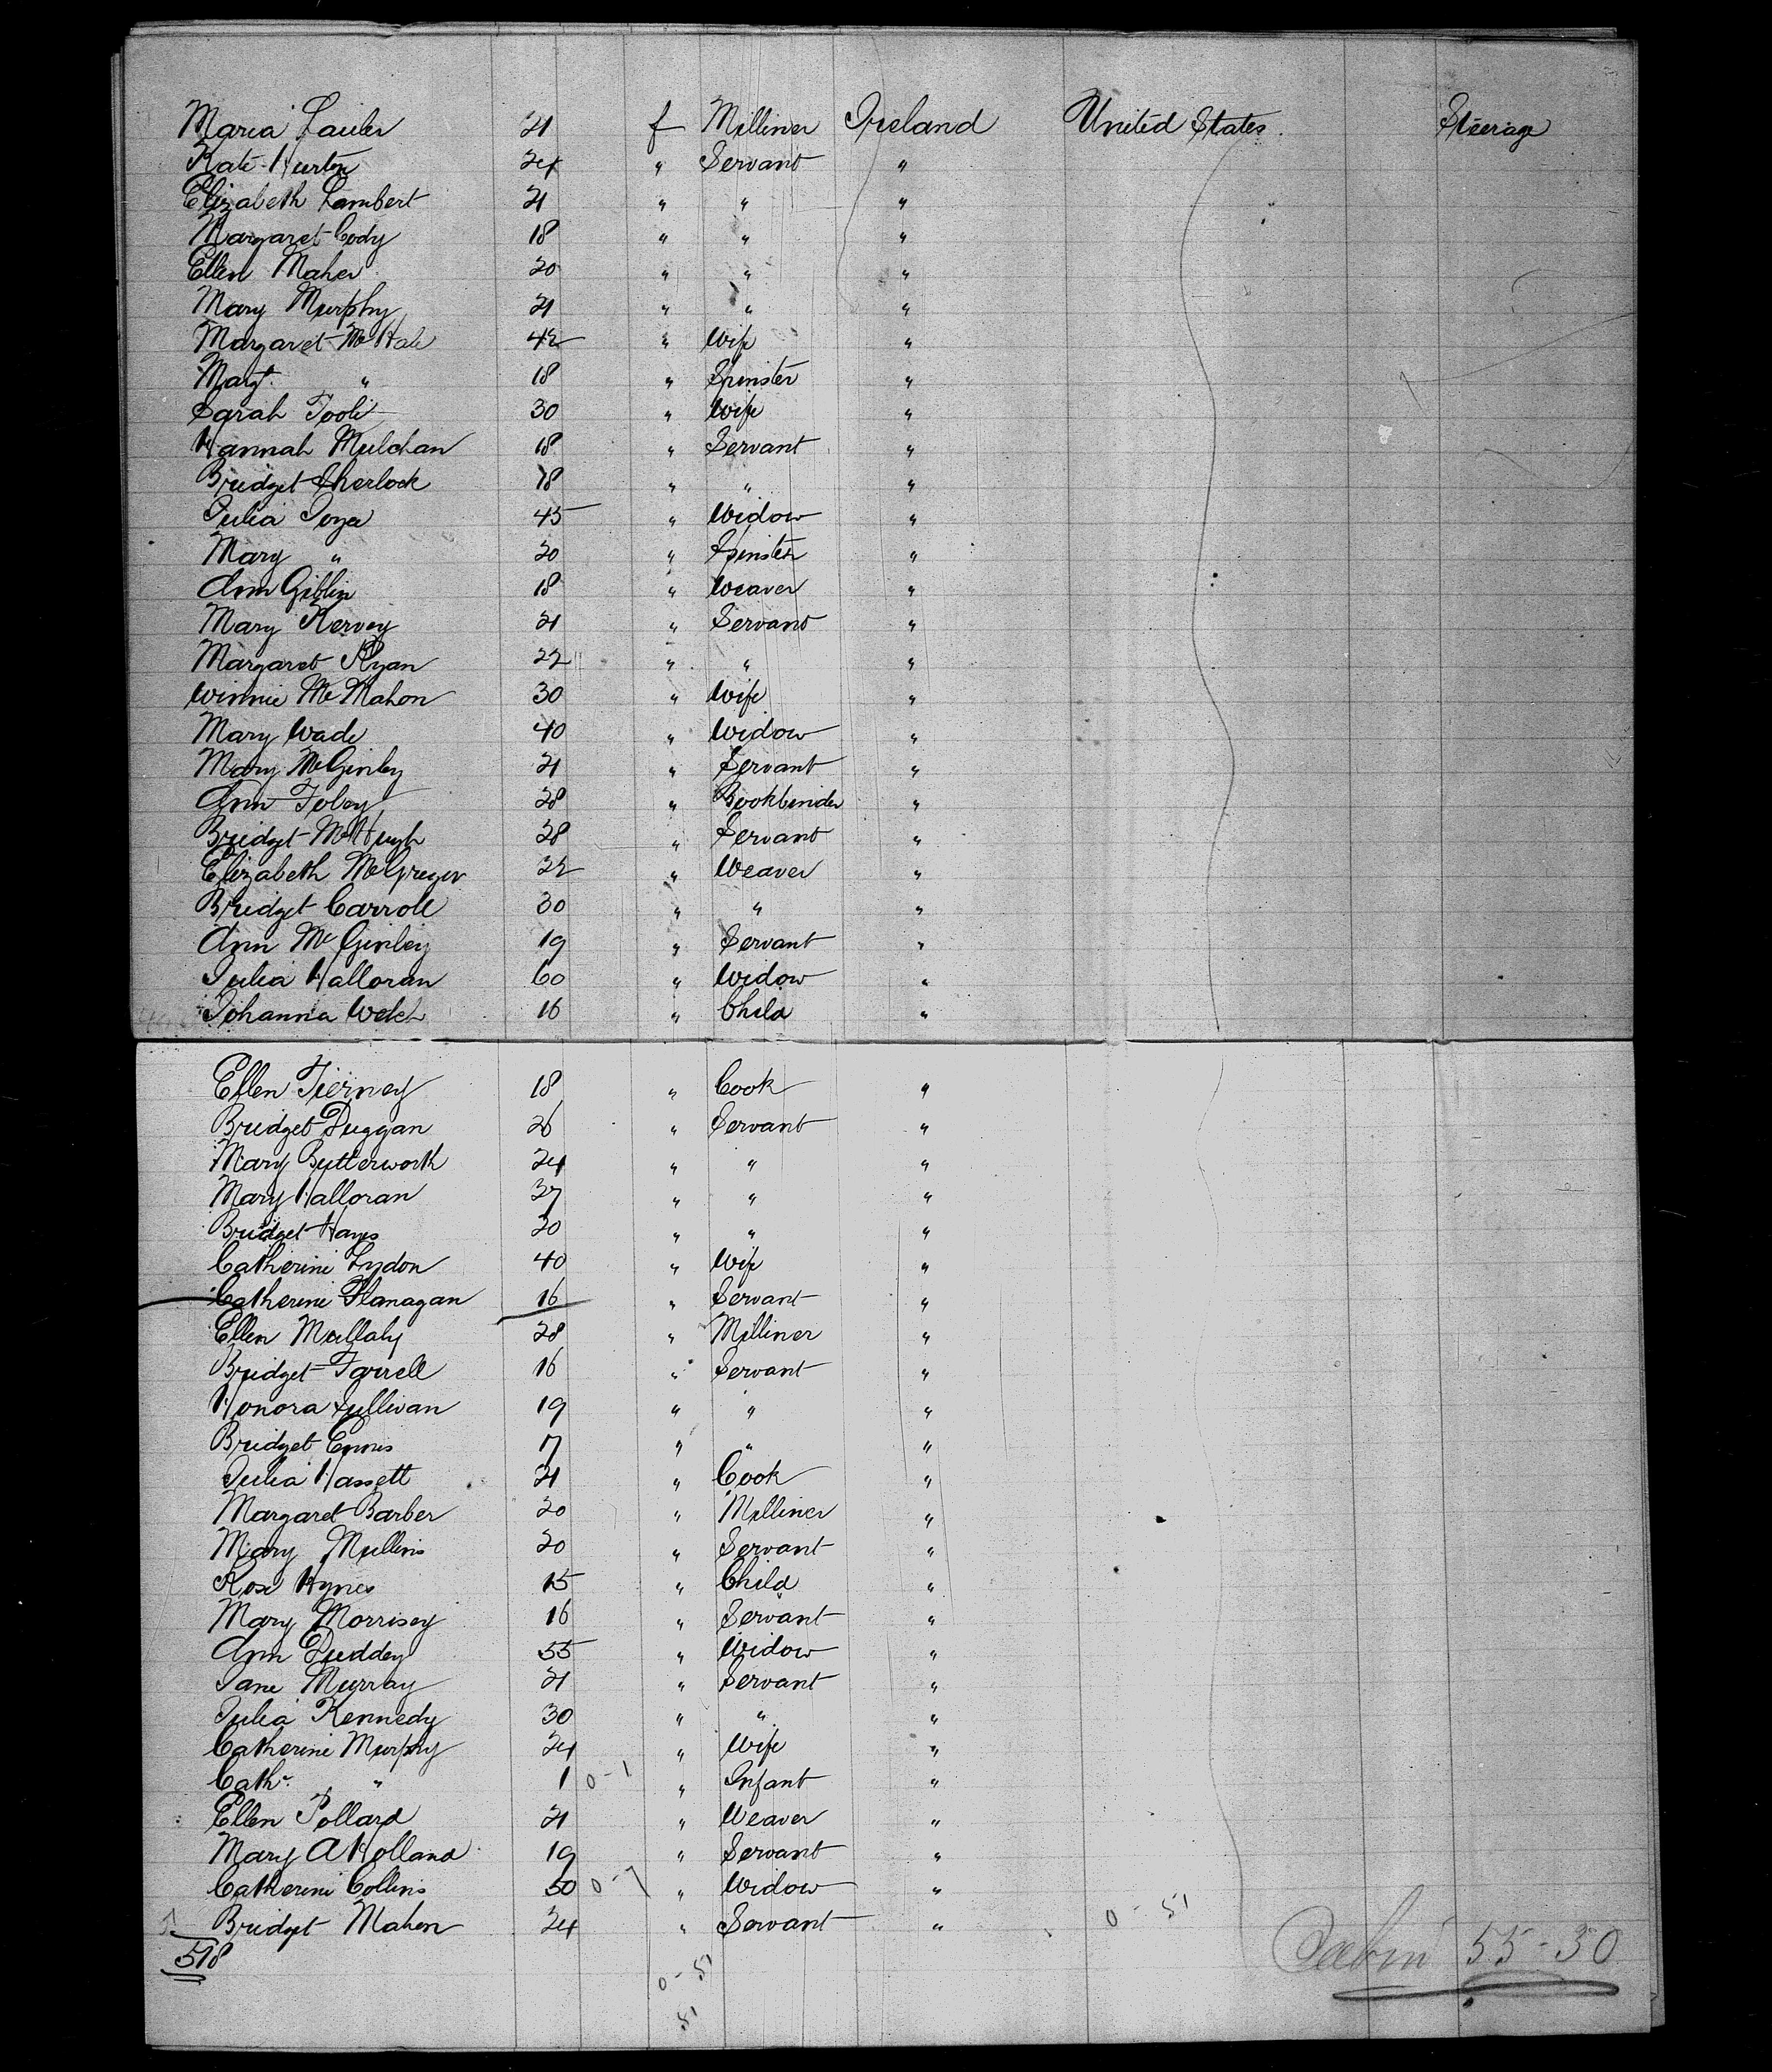 Maria Lawler 21 f Milliner Ireland United States. Steerage
Kate Hurton 24 " Servant "
Elizabeth Lambert 21 " " "
Margaret Cody 18 " " "
Ellen Maher 20 " " "
Mary Murphy 21 " " "
Margaret McHale 42 " Wife "
Margt. " 18 " Spinster "
Sarah Toole 30 " Wife "
Hannah Mulchan 18 " Servant "
Bridget Sherlock 18 " " "
Julia Joyce 45 " Widow "
Mary " 20 " Spinster "
Ann Giblin 18 " Weaver "
Mary Kervey 21 " Servant "
Margaret Ryan 22 " " "
Winnie McMahon 30 " Wife "
Mary Wade 40 " Widow "
Mary McGinley 21 " Servant "
Ann Foley 28 " Bookbinder "
Bridget McHugh 28 " Servant "
Elizabeth McGregor 22 " Weaver "
Bridget Carroll 30 " " "
Ann McGinley 19 " Servant "
Julia Halloran 60 " Widow "
Johanna Welch 16 " Child "
Ellen Tierney 18 " Cook "
Bridget Duggan 26 " Servant "
Mary Butterworth 24 " " "
Mary Halloran 27 " " "
Bridget Hayes 20 " " "
Catherine Lydon 40 " Wife "
Catherine Flanagan 16 " Servant "
Ellen Mullaly 28 " Milliner "
Bridget Farrell 16 " Servant "
Honora Sullivan 19 " " "
Bridget Ennis 17 " " "
Julia Hassett 21 " Cook "
Margaret Barber 20 " Milliner "
Mary Mullins 20 " Servant "
Rose Hynes 15 " Child "
Mary Morrisey 16 " Servant "
Ann Duddey 55 " Widow "
Jane Murray 21 " Servant "
Julia Kennedy 30 " " "
Catherine Murphy 24 " Wife "
Cathe. " 1 0-1 " Infant "
Ellen Pollard 21 " Weaver "
Mary A Holland 19 " Servant "
Catherine Collins 50 0-7 " Widow "
Bridget Mahon 24 " Servant " 0-51
518 Cabin 55-30
0-51
51